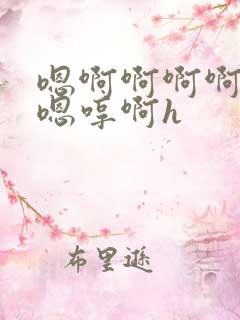 嗯啊啊啊啊
嗯哼啊h
布里逊